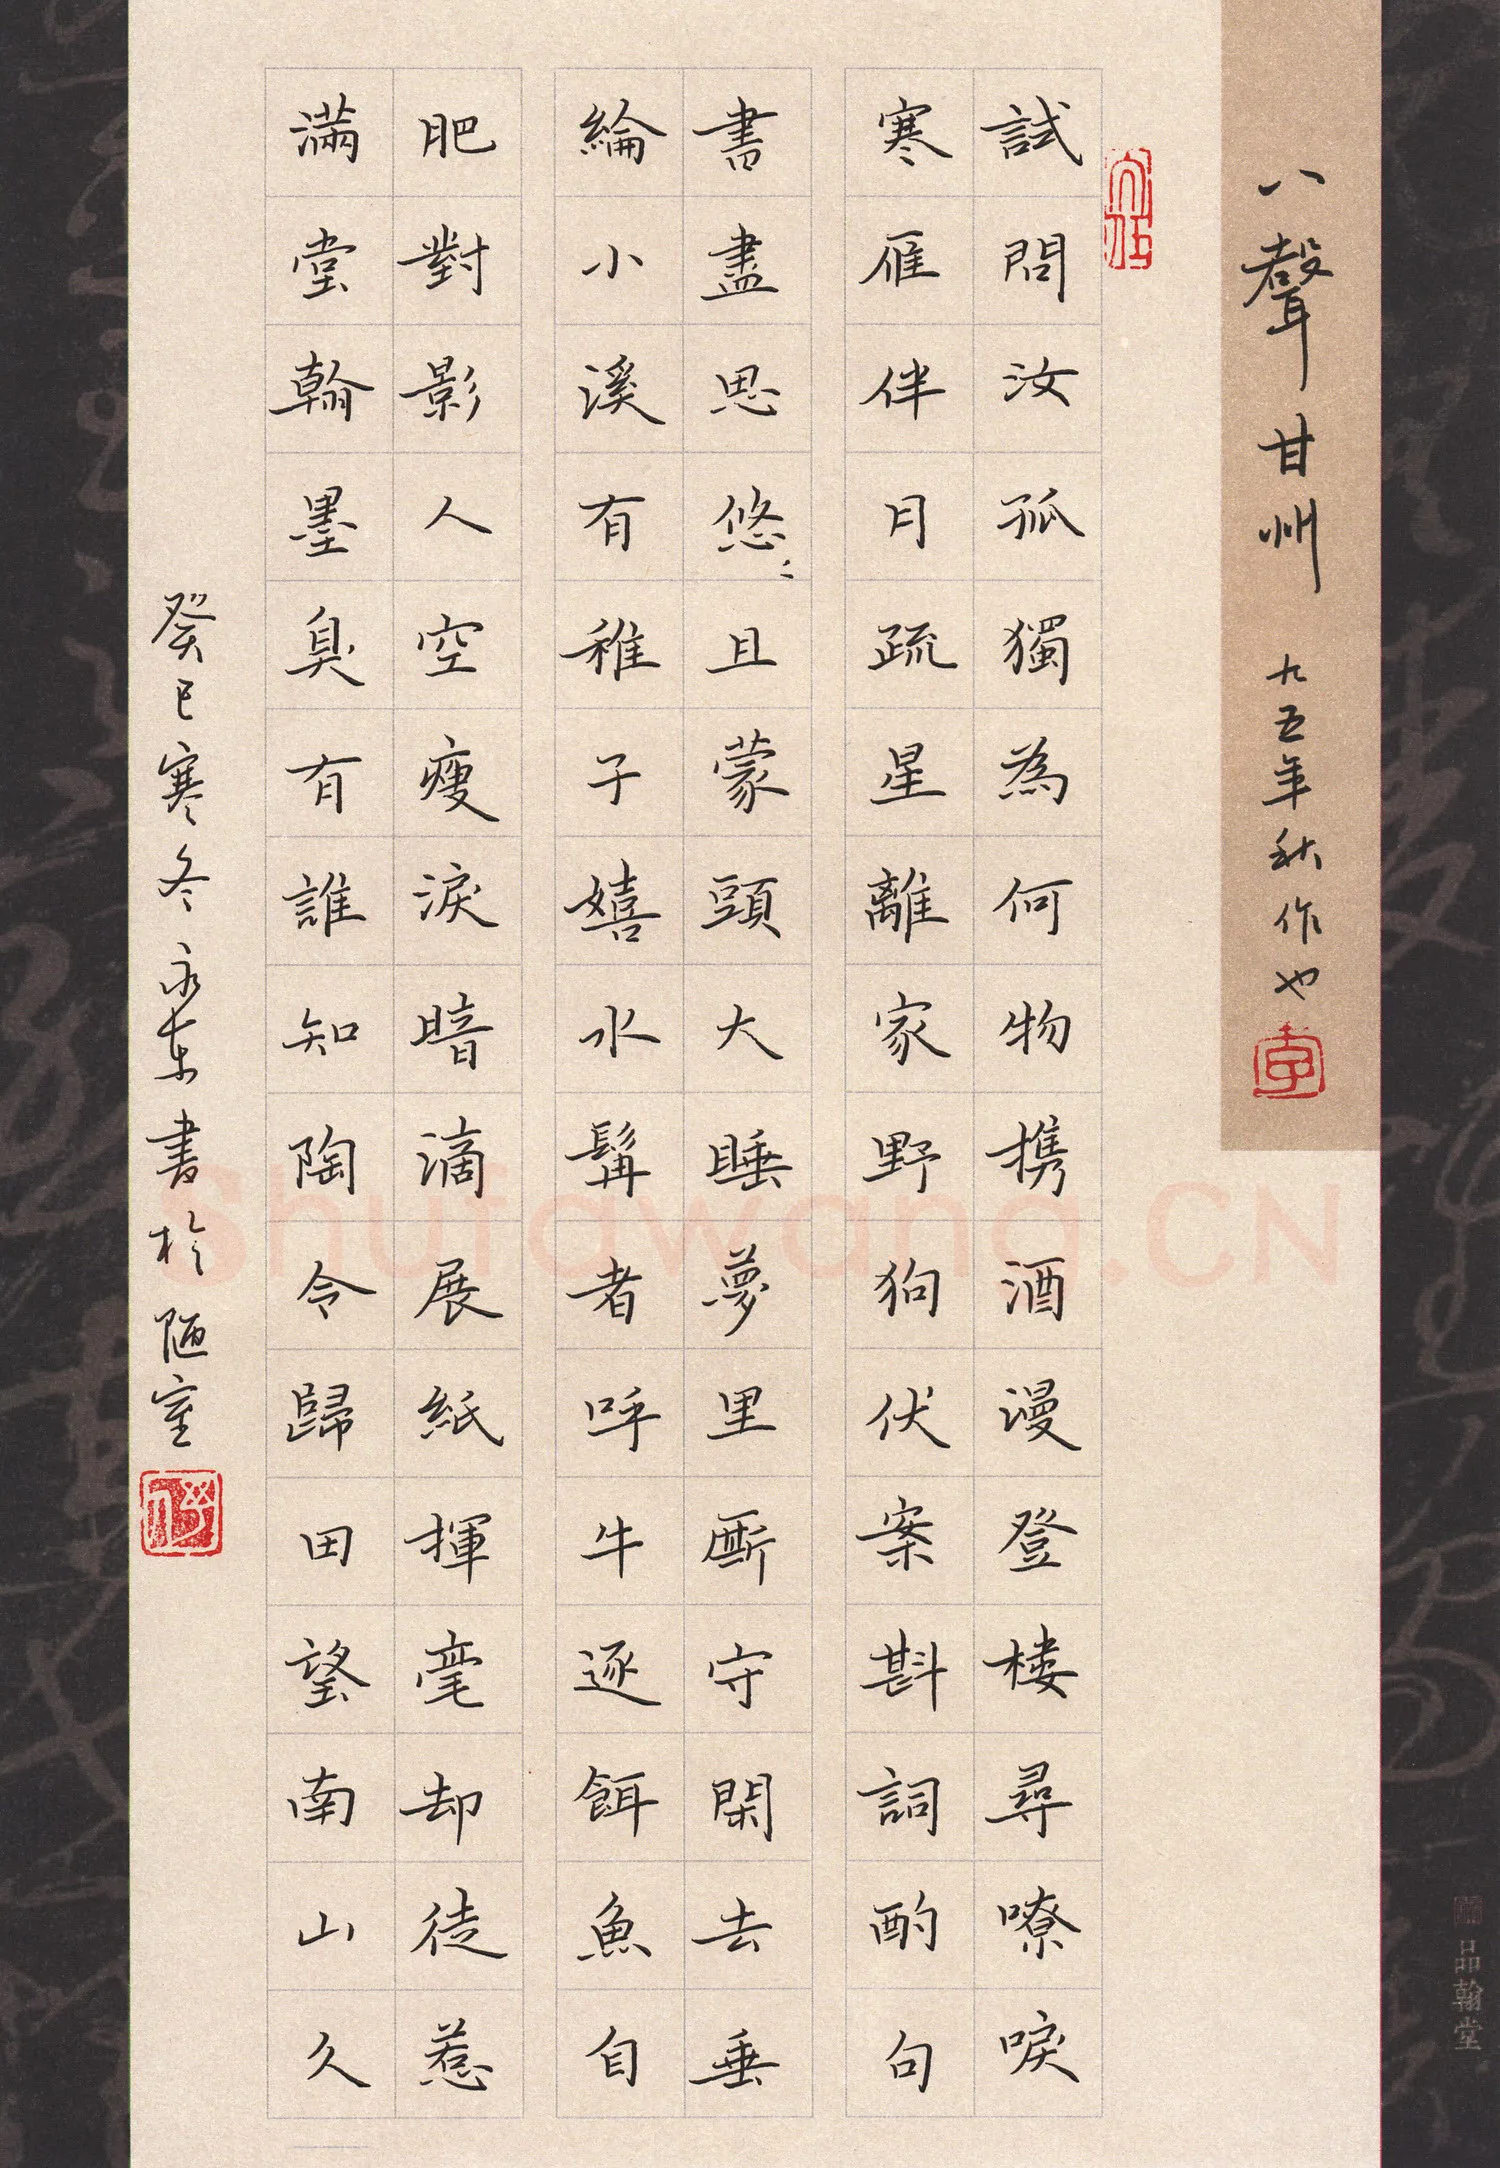 八聲甘州 九五年秋作也
試問汝孤獨為何物携酒漫登楼尋嘹唳
寒雁伴月疏星離家野狗伏案斟詞酌句
書盡思悠〻且蒙頭大睡夢里断守閑去垂
綸小溪有稚子嬉水髯者呼牛逐餌魚自
肥對影人空瘦淚暗滴展紙揮毫却徒惹
滿堂翰墨臭有誰知陶令歸田望南山久
癸巳寒冬永東書於陋室
品翰堂
Shufawang.CN